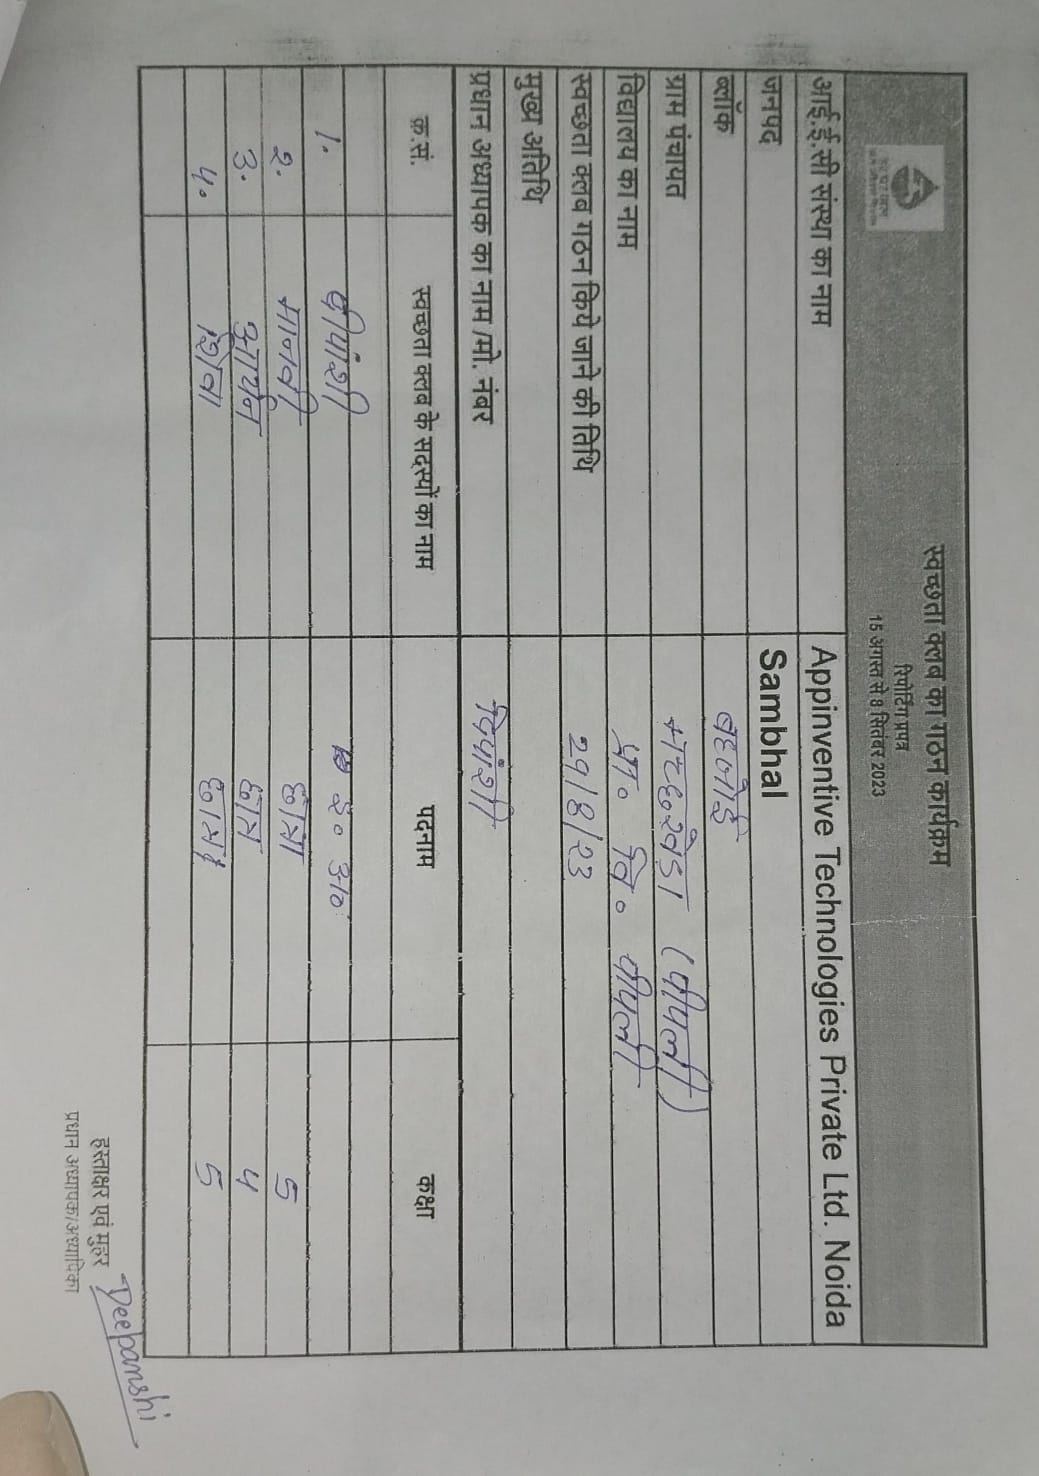 स्वच्छता क्लब का गठन कार्यक्रम
रिपोर्टिंग प्रपत्र
15 अगस्त से 8 सितंबर 2023
आई.ई.सी संस्था का नाम Appinventive Technologies Private Ltd. Noida
जनपद Sambhal
ब्लॉक बहजोई
ग्राम पंचायत (पीपली)
विद्यालय का नाम प्रा० वि० पीपली
स्वच्छता क्लब गठन किये जाने की तिथि 29/8/23
मुख्य अतिथि
प्रधान अध्यापक का नाम /मो. नंबर दिपांशी
क्र.सं. स्वच्छता क्लब के सदस्यों का नाम पदनाम कक्षा
1. दीपांशी इ० अ०
2. मानवी छात्रा 5
3. छात्र 4
4. शिवा छात्रा 5
हस्ताक्षर एवं मुहर
प्रधान अध्यापक/अध्यापिका
Deepanshi